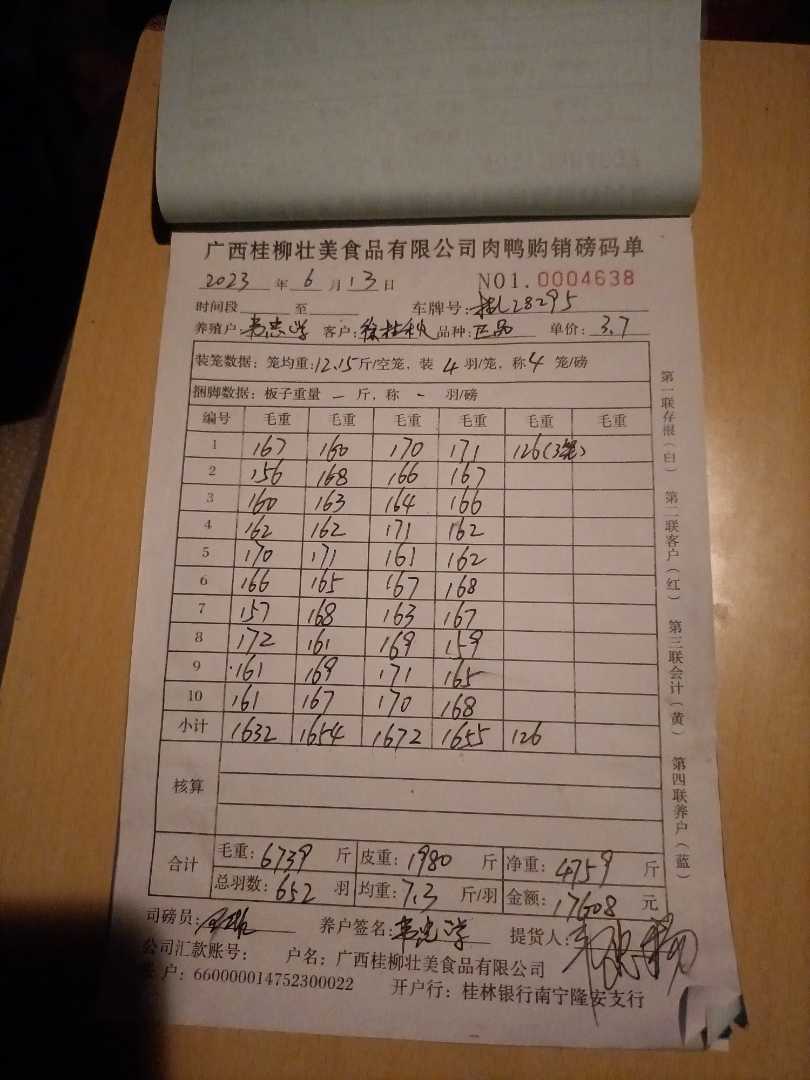 广西桂柳壮美食品有限公司肉鸭购销磅码单
2023 年 6 月 13 日 NO1.0004638
时间段 至 车牌号: 桂L28295
养殖户: 韦忠学 客户: 徐桂秋 品种: 正品 单价: 3.7
装笼数据: 笼均重: 12.15 斤/空笼, 装 4 羽/笼, 称 4 笼/磅
捆脚数据: 板子重量 - 斤, 称 - 羽/磅
编号 毛重 毛重 毛重 毛重 毛重 毛重
1 167 160 170 171 126(3笼)
2 156 168 166 167
3 160 163 164 166
4 162 162 171 162
5 170 171 161 162
6 166 165 167 168
7 157 168 163 167
8 172 161 169 159
9 161 169 171 165
10 161 167 170 168
小计 1632 1654 1672 1655 126
核算
合计 毛重: 6739 斤 皮重: 1980 斤 净重: 4759 斤
总羽数: 652 羽 均重: 7.3 斤/羽 金额: 17608 元
司磅员: 养户签名: 韦忠学 提货人:
公司汇款账号: 户名: 广西桂柳壮美食品有限公司
户: 660000014752300022 开户行: 桂林银行南宁隆安支行
第一联存根(白) 第二联客户(红) 第三联会计(黄) 第四联养户(蓝)